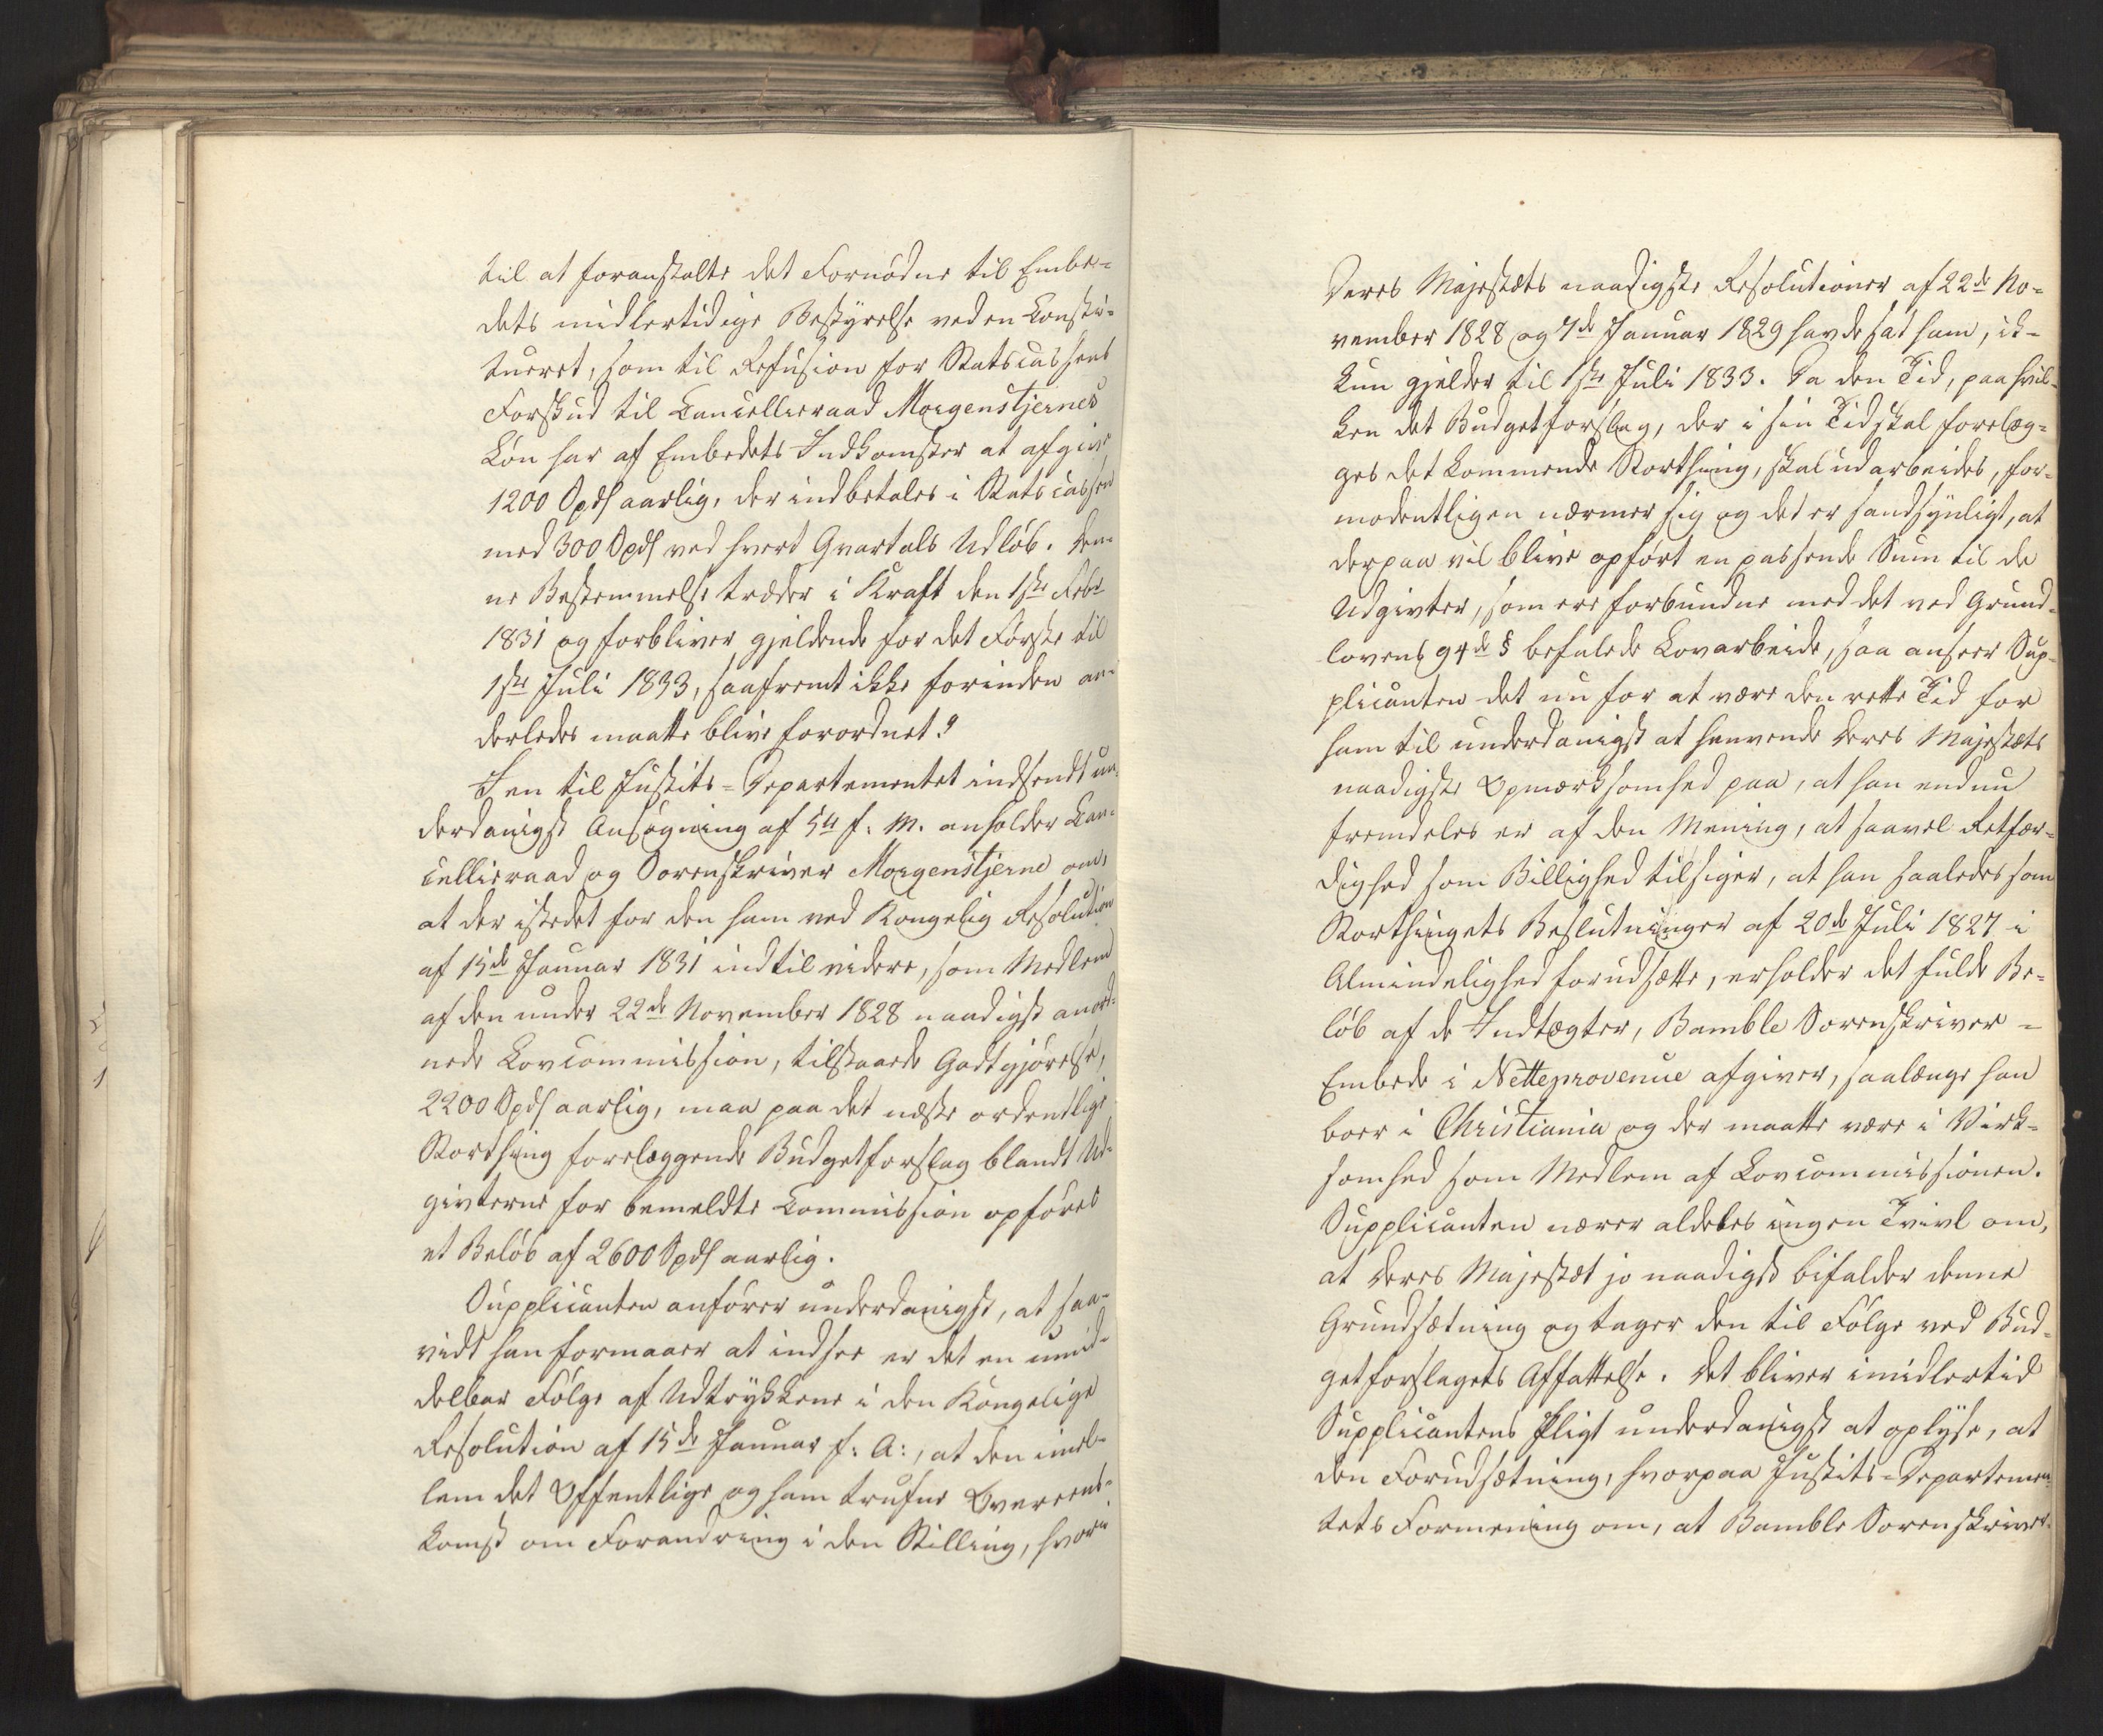 til at foranstalte det Fornødne til Embe-
dets midlertidige Bestyrelse ved en Consti-
tueret, som til Refusion for Statscassens
Forskud til Cancellieraad Morgenstjernes
Løn har af Embedets Indkomster at afgive
1200 Spdl aarlig, der indbetales i Statscassen
med 300 Spdl ved hvert Qvartals Udløb. Den-
ne Bestemmelse træder i Kraft den 1ste Febr
1831 og forbliver gjeldende for det Første til
1ste Juli 1833, saafremt ikke forinden an-
derledes maatte blive forordnet."
I en til Justits-Departementet indsendt un-
derdanigst Ansøgning af 5te f. M. anholder Can-
cellieraad og Sorenskriver Morgenstjerne om,
at der istedet for den ham ved Kongelig Resolution
af 15de Januar 1831 indtil videre, som Medlem
af den under 22de November 1828 naadigst anord-
nede Lovcommission, tilstaaede Godtgjørelse,
2200 Spdl aarlig, maa paa det næste ordentlige
Storthing forelæggende Budgetforslag blandt Ud-
givterne for bemeldte Commission opføres
et Beløb af 2600 Spdl aarlig.
Supplicanten anfører underdanigst, at saa-
vidt han formaaer at indsee er det en umid-
delbar Følge af Udtrykkene i den Kongelige
Resolution af 15de Januar f: A:, at den imel-
lem det Offentlige og ham trufne Overeens-
komst om Forandring i den Stilling, hvori
Deres Majestæts naadigste Resolutioner af 22de No-
vember 1828 og 7de Januar 1829 havde sat ham, ik-
kun gjelder til 1ste Juli 1833. Da den Tid, paa hvil-
ken det Budgetforslag, der i sin Tid skal forelæg-
ges det kommende Storthing, skal udarbeides, for-
modentligen nærmer sig og det er sandsynligt, at
derpaa vil blive opført en passende Sum til de
Udgivter, som ere forbundne med det ved Grund-
lovens 94de § befalede Lovarbeide, saa anseer Sup-
plicanten det nu for at være den rette Tid for
ham til underdanigst at henvende Deres Majestæts
naadigste Opmærksomhed paa, at han endnu
fremdeles er af den Mening, at saavel Retfær-
dighed som Billighed tilsiger, at han saaledes som
Storthingets Beslutninger af 20de Juli 1827 i
Almindelighed forudsætte, erholder det fulde Be-
løb af de Indtægter, Bamble Sorenskriver-
Embede i Nettoprovenue afgiver, saalænge han
boer i Christiania og der maatte være i Virk-
somhed som Medlem af Lovcommissionen.
Supplicanten nærer aldeles ingen Tvivl om,
at Deres Majestæt jo naadigst bifalder denne
Grundsætning og tager den til Følge ved Bud-
getforslagets Affattelse. Det bliver imidlertid
Supplicantens Pligt underdanigst at oplyse, at
den Forudsætning, hvorpaa Justits-Departemen-
tets Formening om, at Bamble Sorenskriver-